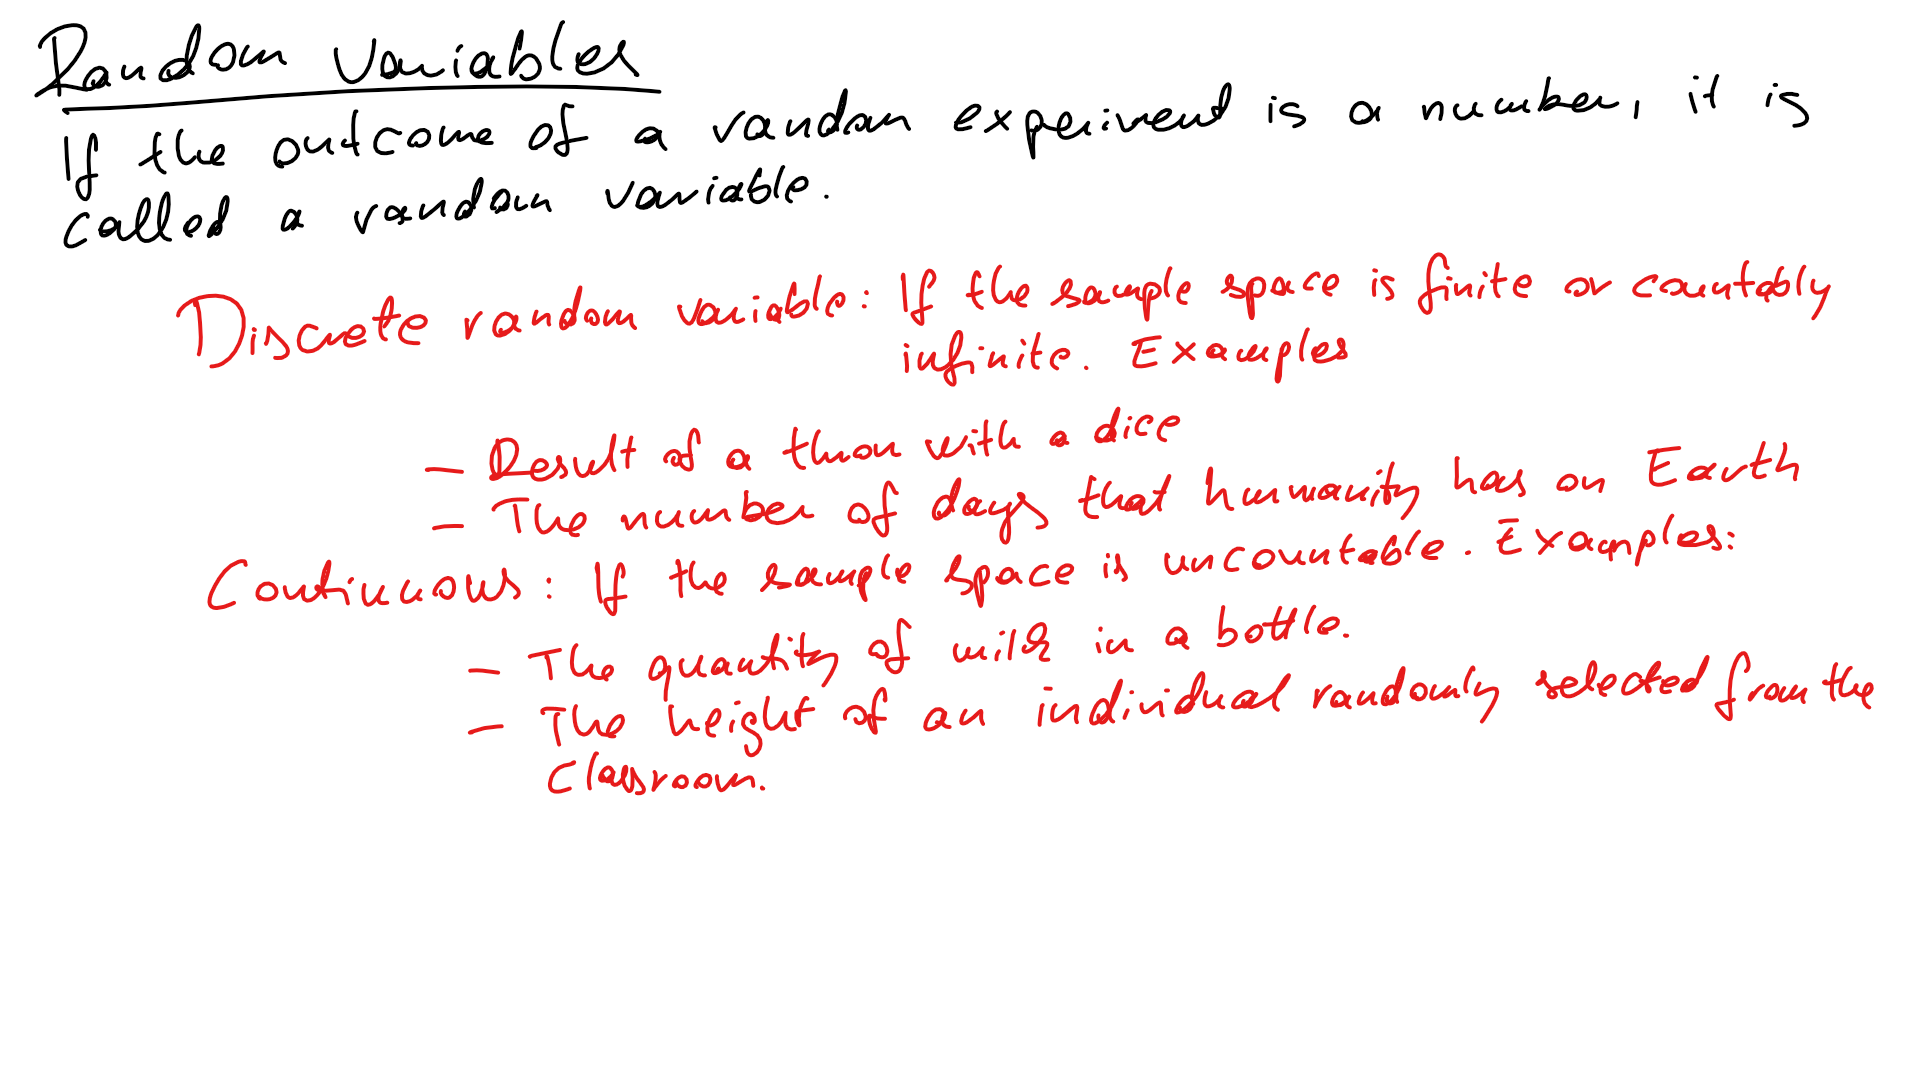 Random variables
If the outcome of a random experiment is a number, it is
called a random variable.
Discrete random variable: If the sample space is finite or countably
infinite. Examples
- Result of a throw with a dice
- The number of days that humanity has on Earth
Continuous: If the sample space is uncountable. Examples:
- The quantity of milk in a bottle.
- The height of an individual randomly selected from the
classroom.